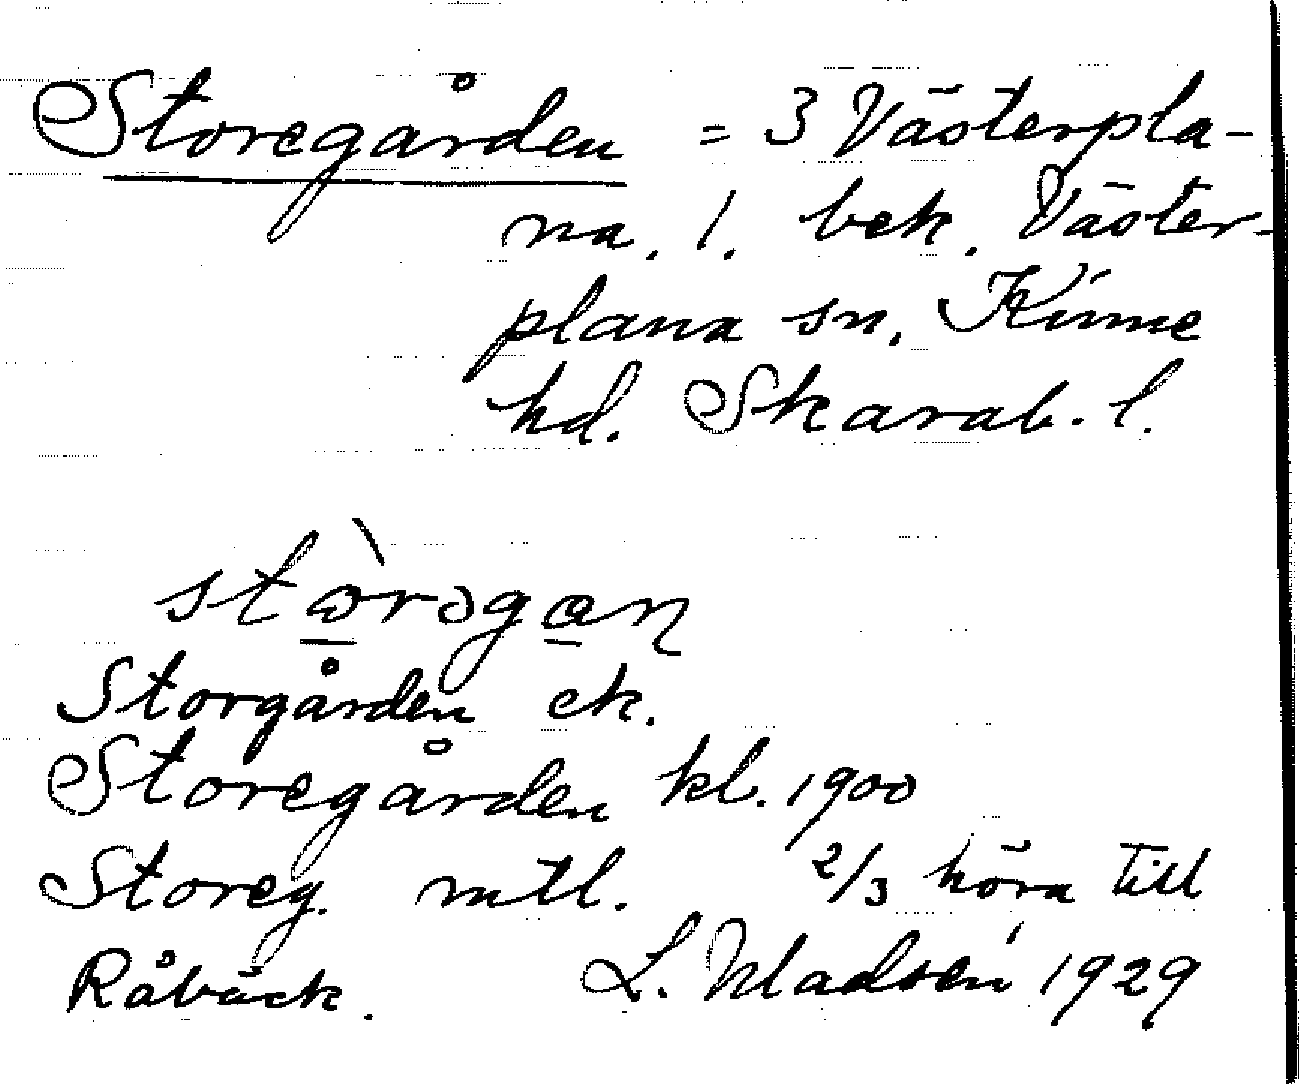 Storegården = 3 Västerpla-
na. 1. bek. Väster-
plana sn, Kinne
hd. Skarab. l.
stòrɔgan
Storgården ek.
Storegården kl. 1900
Storeg. mtl. 2/3 höra till
Råbäck. L. Madsén 1929